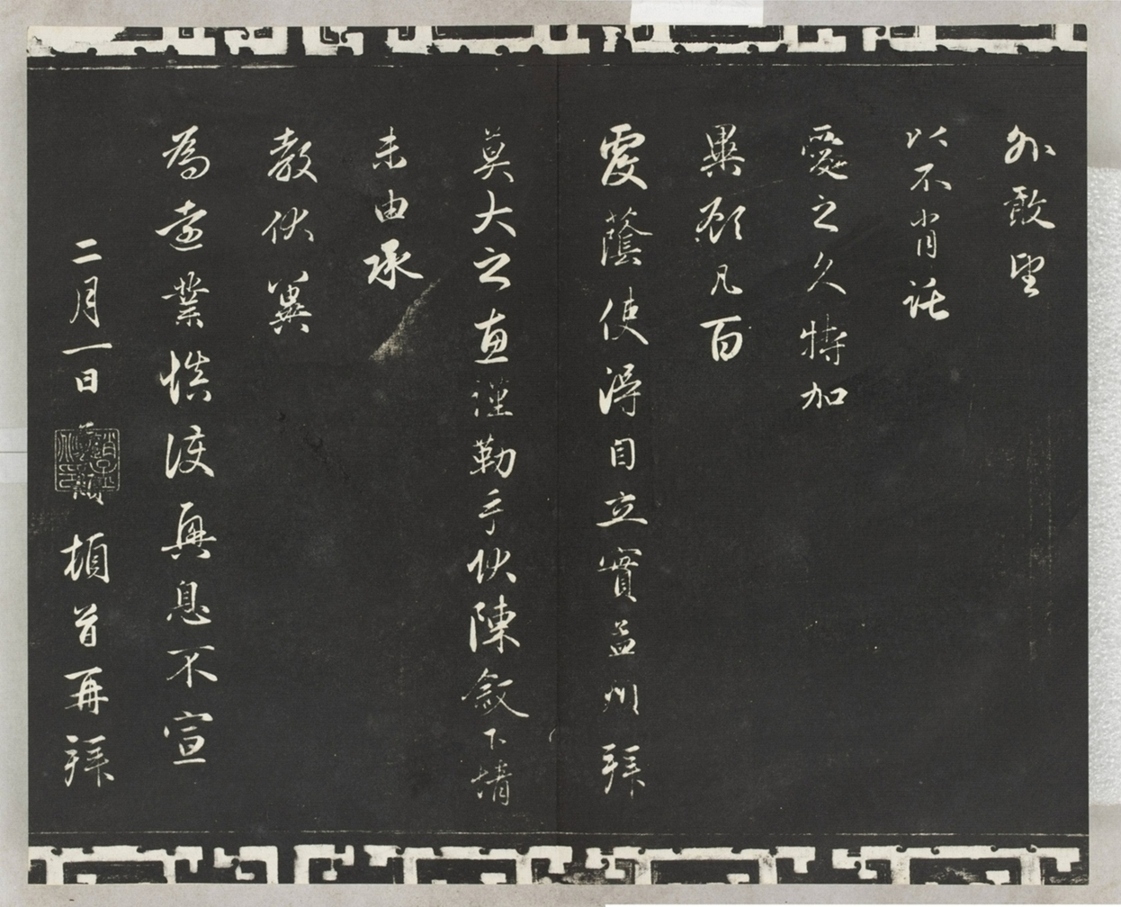 外敢望
以不肖託
愛之久特加
異顧凡百
覆蔭使得自立實孟州拜
莫大之惠謹勒手狀陳敘下情
未由承
教伏冀
為遠業慎護興息不宣
二月一日頓首再拜